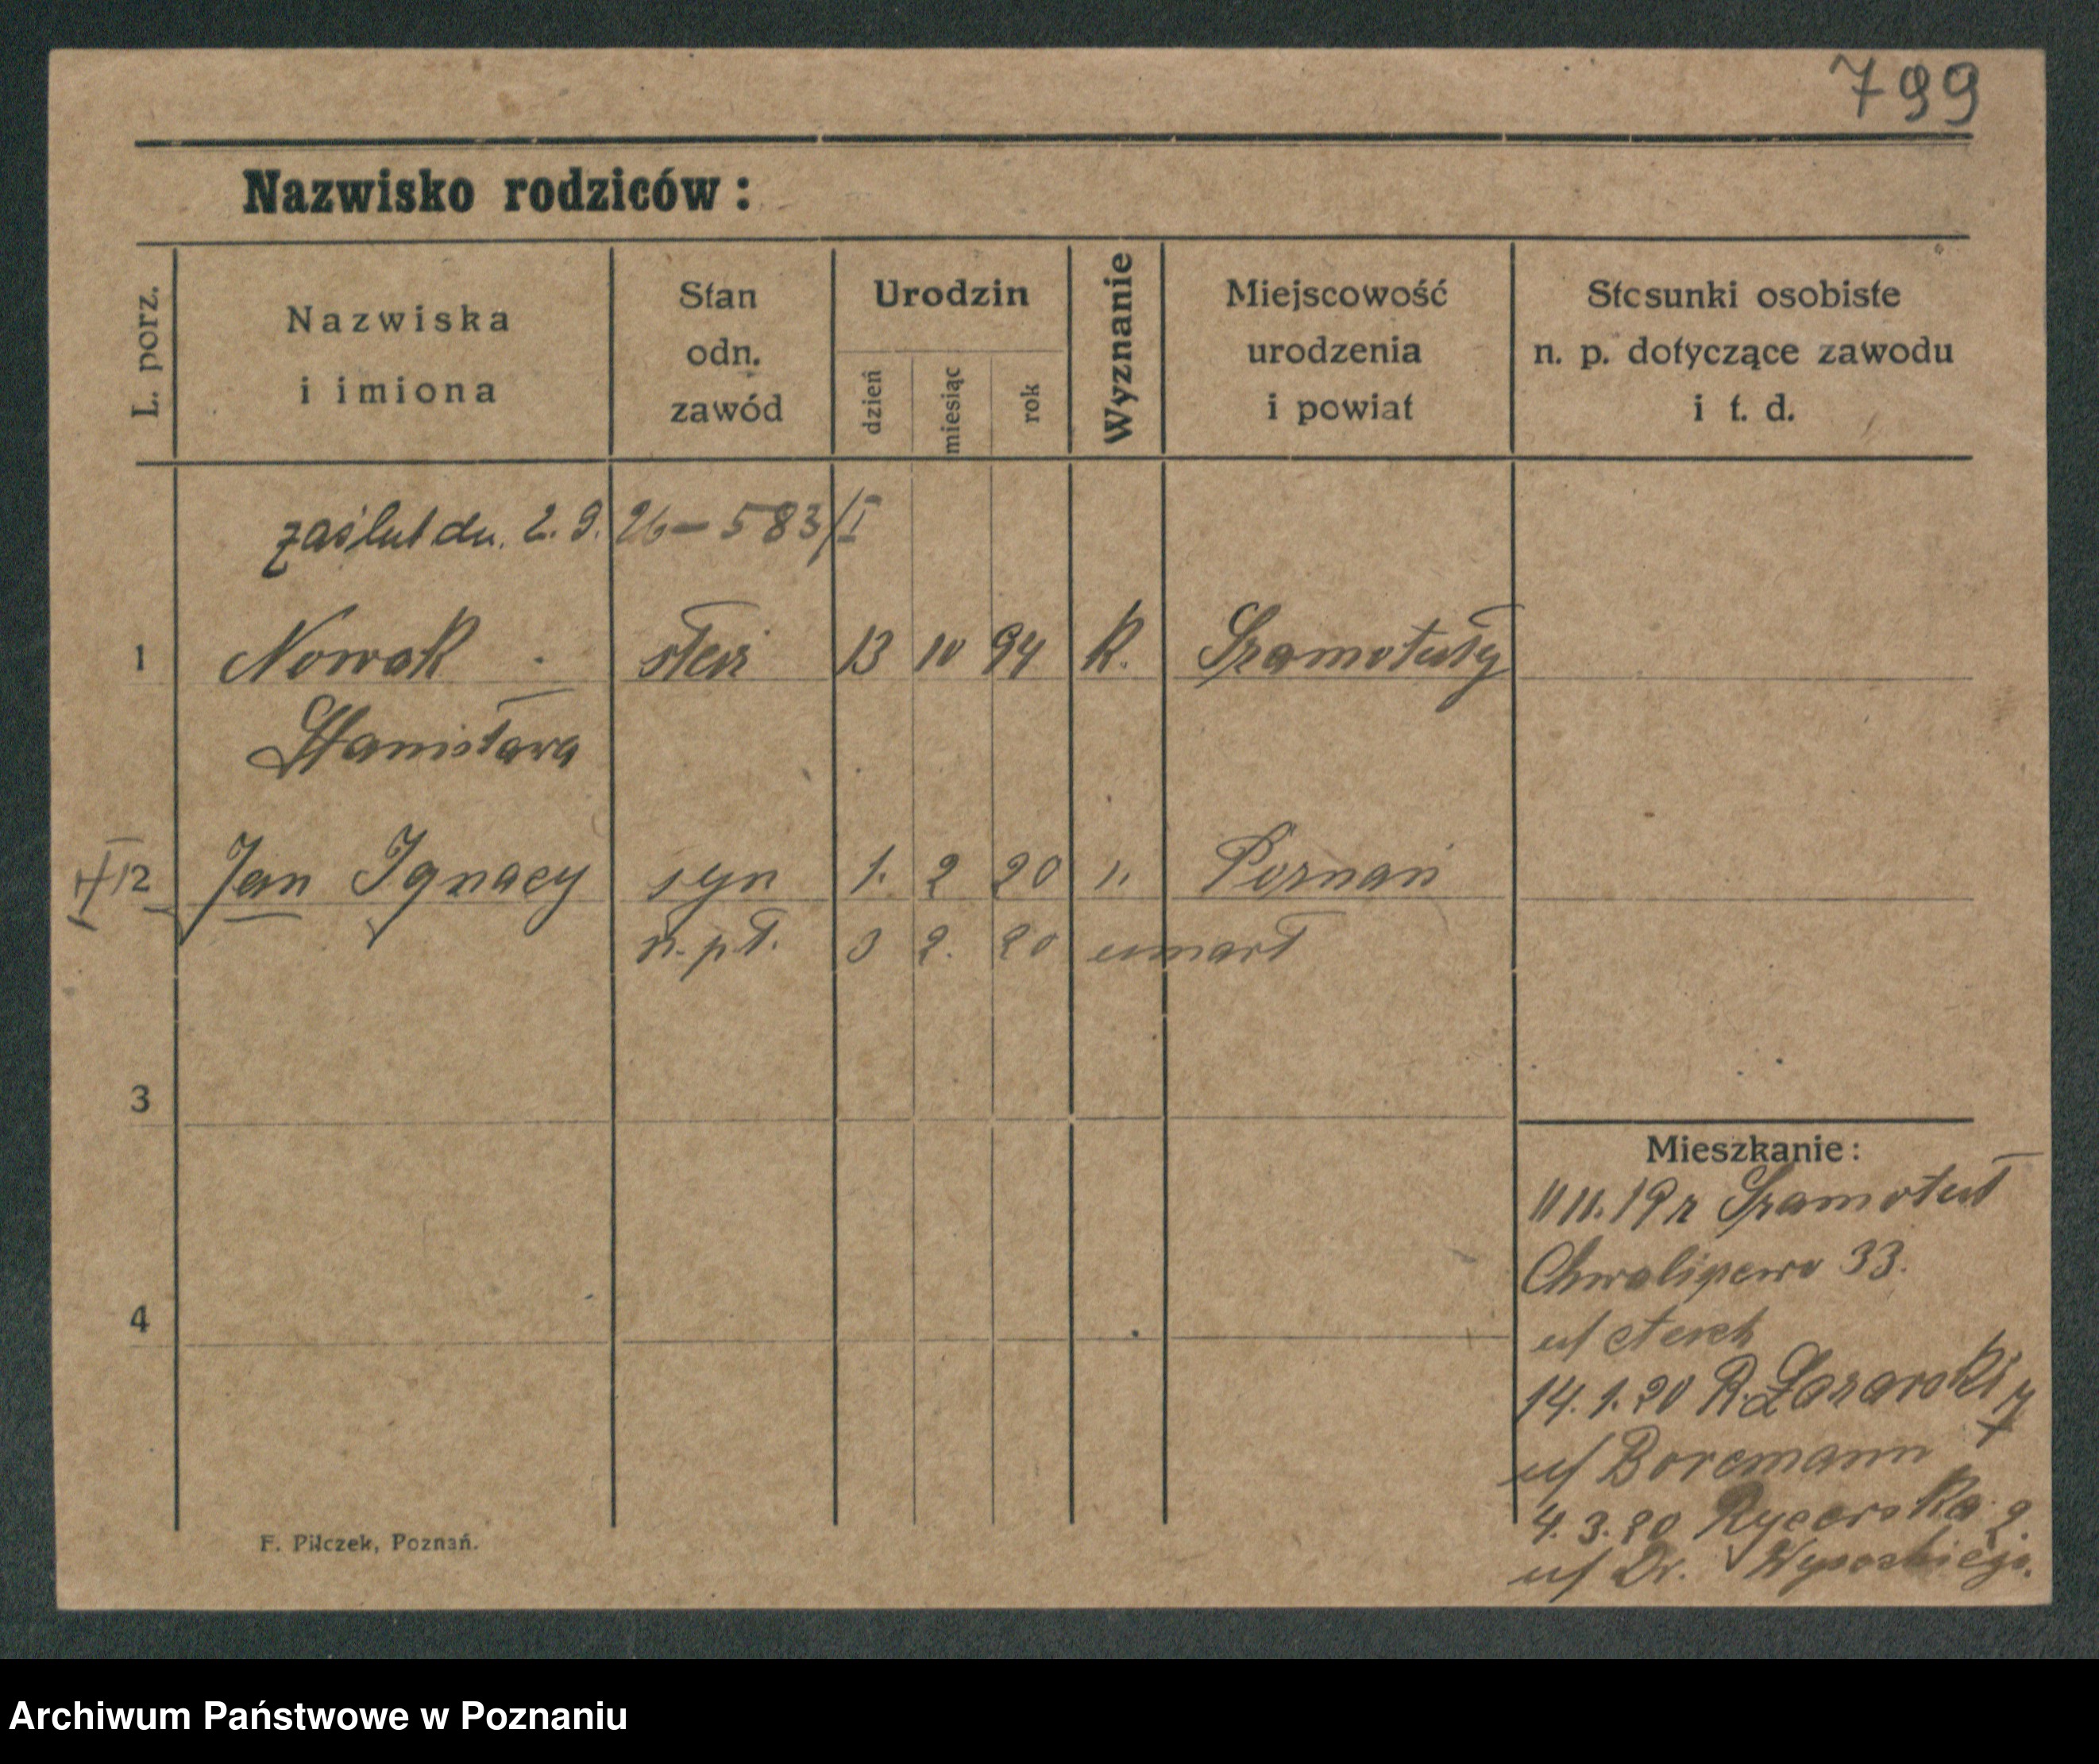 799
Nazwisko rodziców :
L. porz.
Nazwiska
i imiona
Stan
odn.
zawód
Urodzin
dzień
miesiąc
rok
Wyznanie
Miejscowość
urodzenia
i powiat
Stosunki osobiste
n. p. dotyczące zawodu
i t. d.
zaślub dn. 2. 9. 26 – 583/I
1 Nowak 13 10 94 k. Szamotuły
Stanisława
2 Jan Ignacy syn 1. 2 20 ". Poznań
n. pł. 3 2. 20 umarł
3
4
Mieszkanie :
11 11. 19 z Szamotuł
33.
u/
14. 1. 20 R. Łazarski 7
u/ Borcmann
4. 3. 20 Rycerska 2.
u/ Dr. Wysockiego.
F. Pilczek, Poznań.
Archiwum Państwowe w Poznaniu